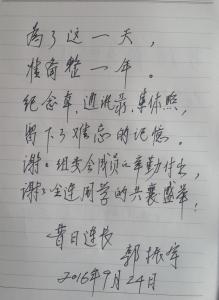 为了这一天，
准备整一年。
纪念章，通讯录，集体照，
留下了难忘的记忆。
谢谢组委会成员的辛勤付出，
谢谢全连同学的共襄盛举！
昔日连长
郭振军
2016年9月24日